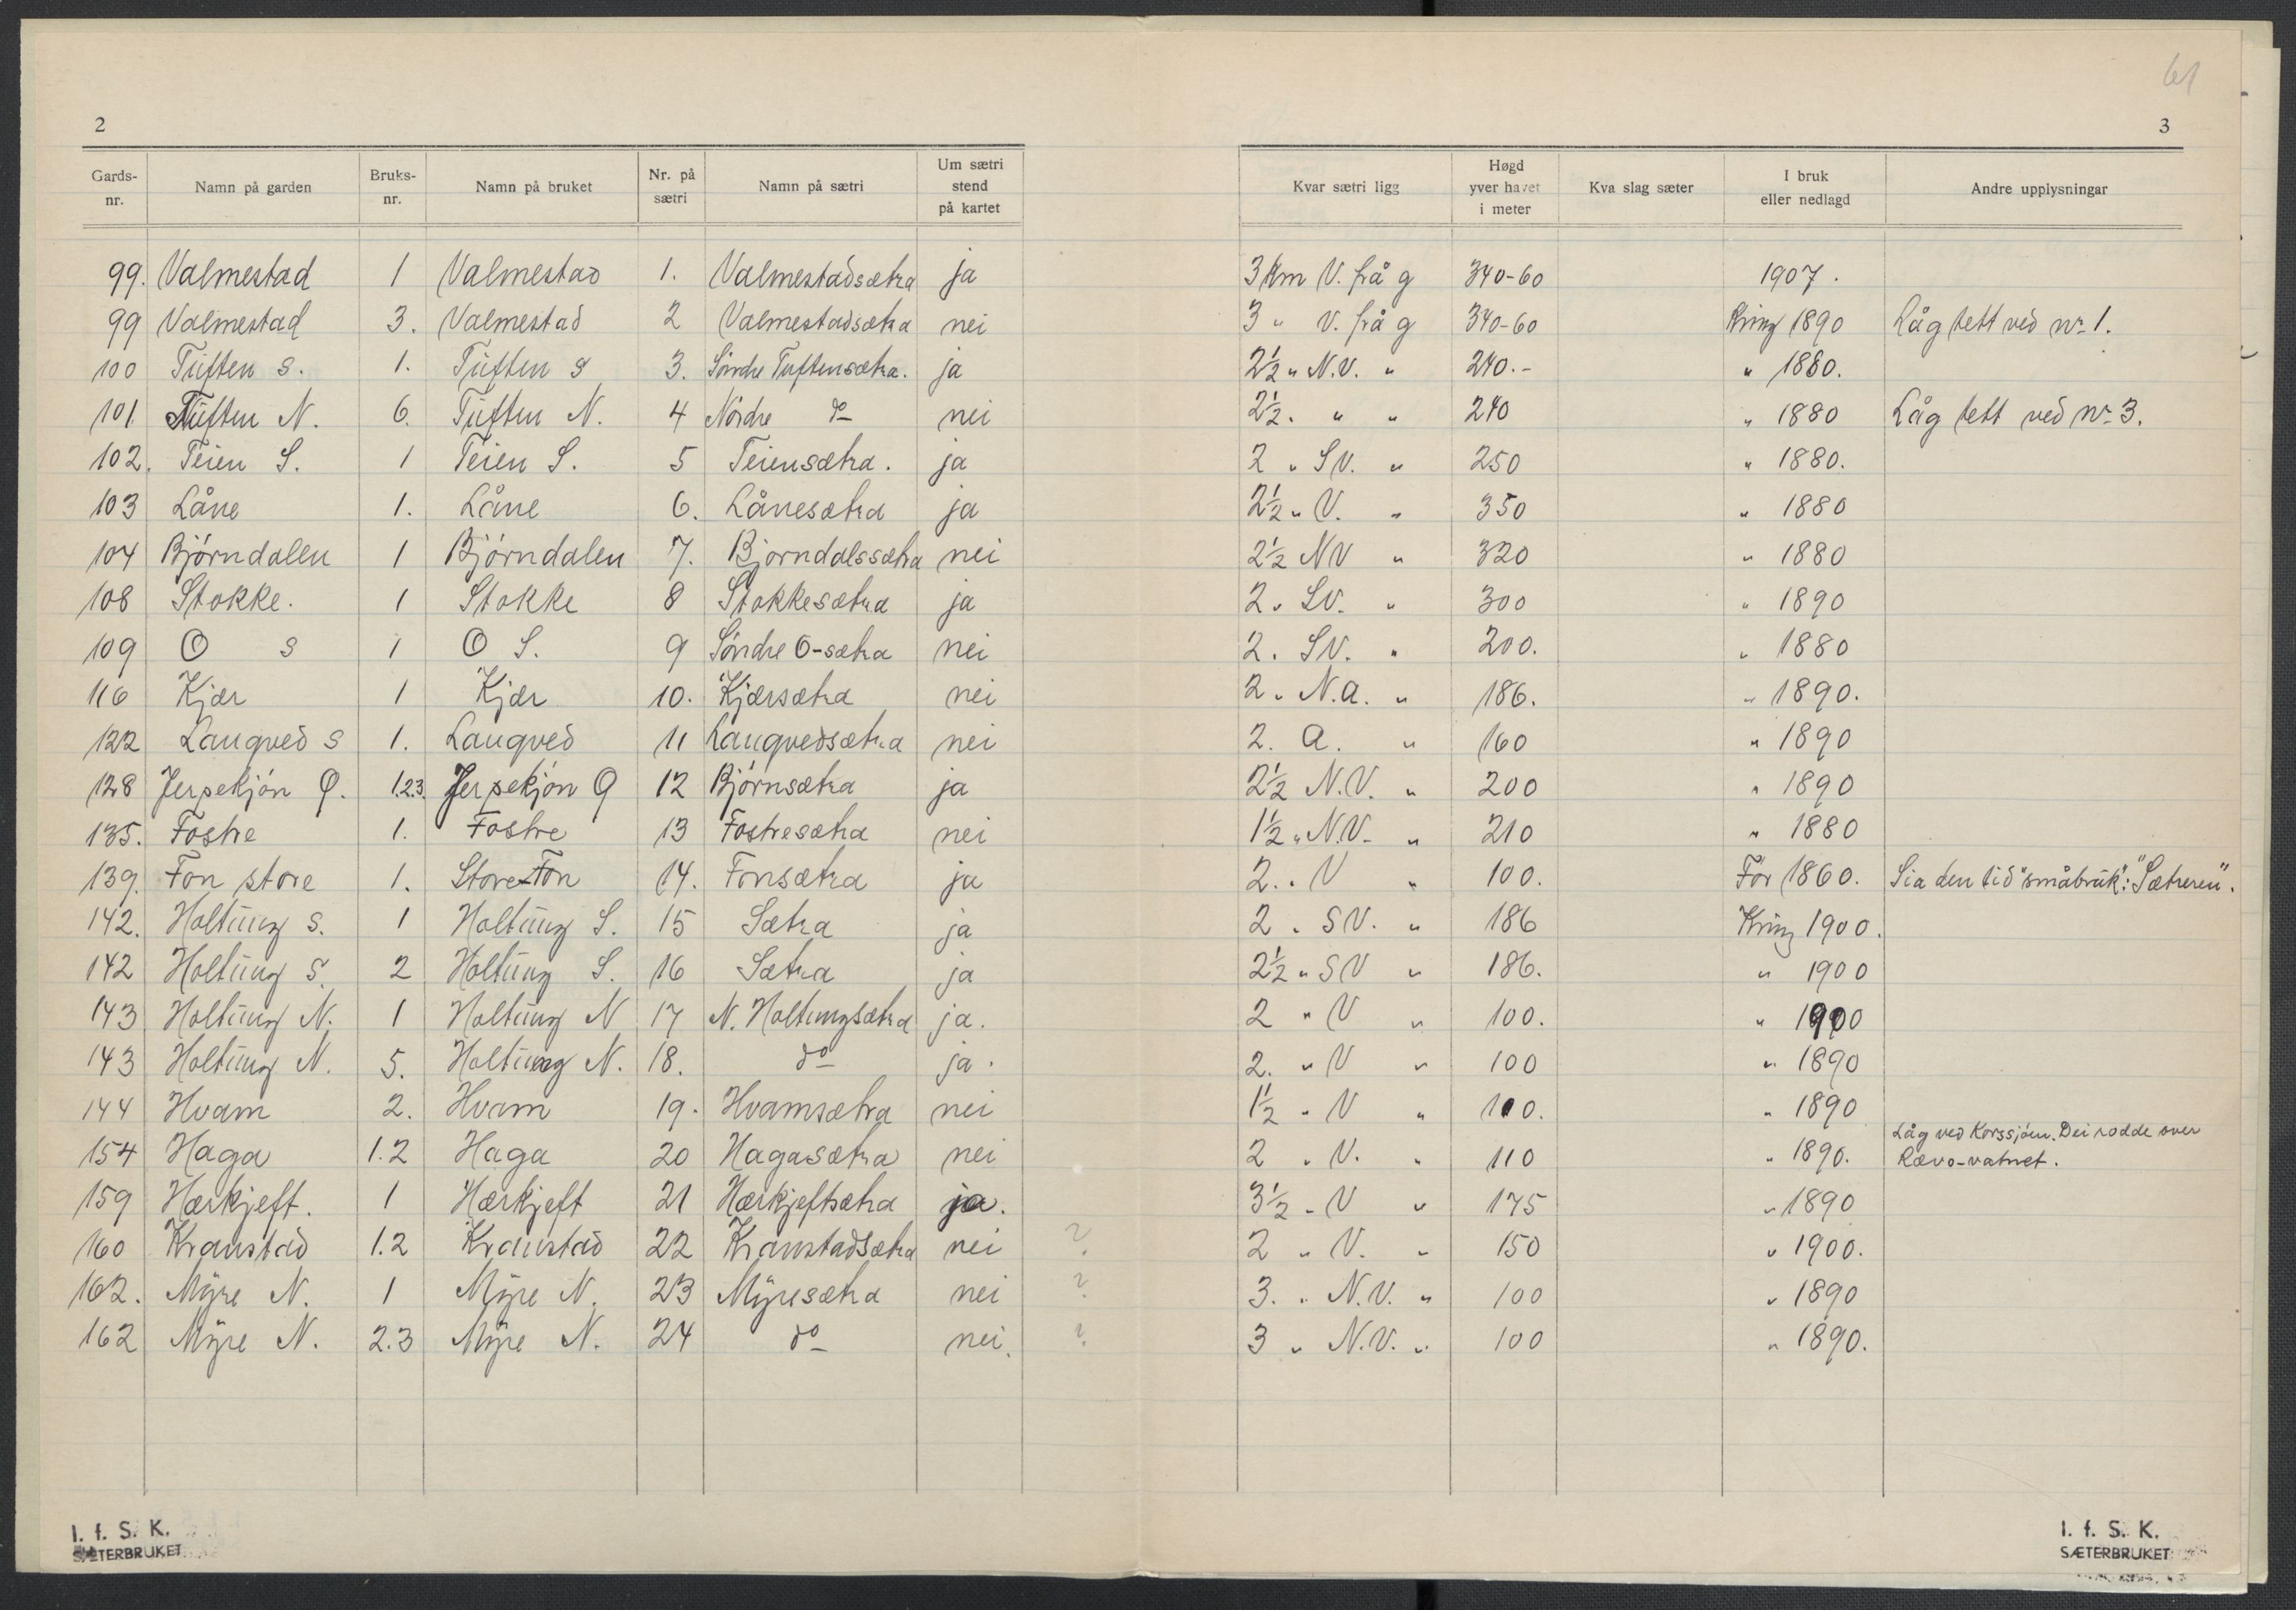 61
2
3
Gards-nr. Namn på garden Bruks-nr. Namn på bruket Nr. på sætri Namn på sætri Um sætri stend på kartet Kvar sætri ligg Høgd yver havet i meter Kva slag sæter I bruk eller nedlagd Andre upplysningar
99. Valmestad 1 Valmestad 1. Valmestadsætra ja 3 km V. frå g 340-60 1907.
99 Valmestad 3. Valmestad 2 Valmestadsætra nei 3 " V. frå g 340-60 Kring 1890 Låg tett ved nr. 1.
100 Tuften S. 1. Tuften S 3. Söndre Tuftensætra. ja 2½ " N.V. " 240.- " 1880.
101 Tuften N. 6. Tuften N. 4 Nördre do nei 2½. " " 240 " 1880 Låg tett ved nr. 3.
102. Teien S. 1 Teien S. 5 Teiensætra. ja 2 " S.V. " 250 " 1880.
103 Låne 1. Låne 6. Lånesætra ja 2½ " V. " 350 " 1880
104 Björndalen 1 Björndalen 7. Bjorndalssætra nei 2½ NV " 320 " 1880
108 Stokke. 1 Stokke 8 Stokkesætra ja 2 " SV. " 300 " 1890
109 O S 1 O S. 9 Söndre O-sætra nei 2. SV. " 200. " 1880
116 Kjær 1 Kjær 10. Kjærsætra nei 2 " N.A. " 186. " 1890.
122 Langved S 1. Langved 11 Langvedsætra nei 2. A. " 160 " 1890
128 Jerpekjön Ö. 1.2.3. Jerpekjön Ö 12 Björnsætra ja 2½ N.V. " 200 " 1890
135. Fostre 1. Fostre 13 Fostresætra nei 1½ " N.V. " 210 " 1880
139. Fon store 1. Store Fon 14. Fonsætra ja 2. " V " 100. För 1860. Sia den tid "småbruk": "Sætreren".
142. Holtung S. 1 Holtung S. 15 Sætra ja 2 " SV. " 186 Kring 1900.
142 Holtung S. 2 Holtung S. 16 Sætra ja 2½ " SV " 186. " 1900
143 Holtung N. 1 Holtung N 17 N. Holtungsætra ja. 2 " V " 100. " 1900
143 Holtung N. 5. Holtung N. 18. do ja. 2. " V " 100 " 1890
144 Hvam 2. Hvam 19. Hvamsætra nei 1½ " V " 100. " 1890
154 Haga 1.2 Haga 20 Hagasætra nei 2 " V. " 110 " 1890. Låg ved Korssjöen. Dei rodde over Rævo-vatnet.
159 Hærkjeft. 1 Hærkjeft 21 Hærkjeftsætra ja. 3½ " V " 175 " 1890
160 Kranstad 1.2 Kranstad 22 Kranstadsætra nei ? 2 " V. " 150 " 1900.
162. Myre N. 1 Myre N. 23 Myresætra nei ? 3. " N.V. " 100 " 1890
162 Myre N. 2.3 Myre N. 24 do nei. ? 3 " N.V. " 100 " 1890.
I. f. S. K.
SÆTERBRUKET
I. f. S. K.
SÆTERBRUKET